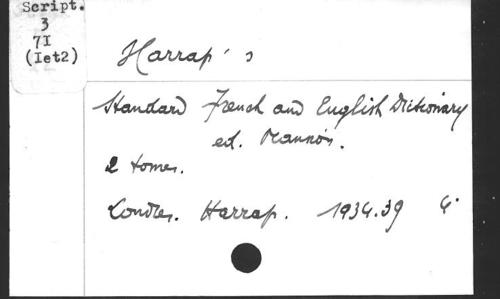 Script.
3
71
(Iet2)
Harrap's
Standard French and English Dictionary
ed. Mansion.
2 tomes.
Londres. Harrap. 1934.39 4°